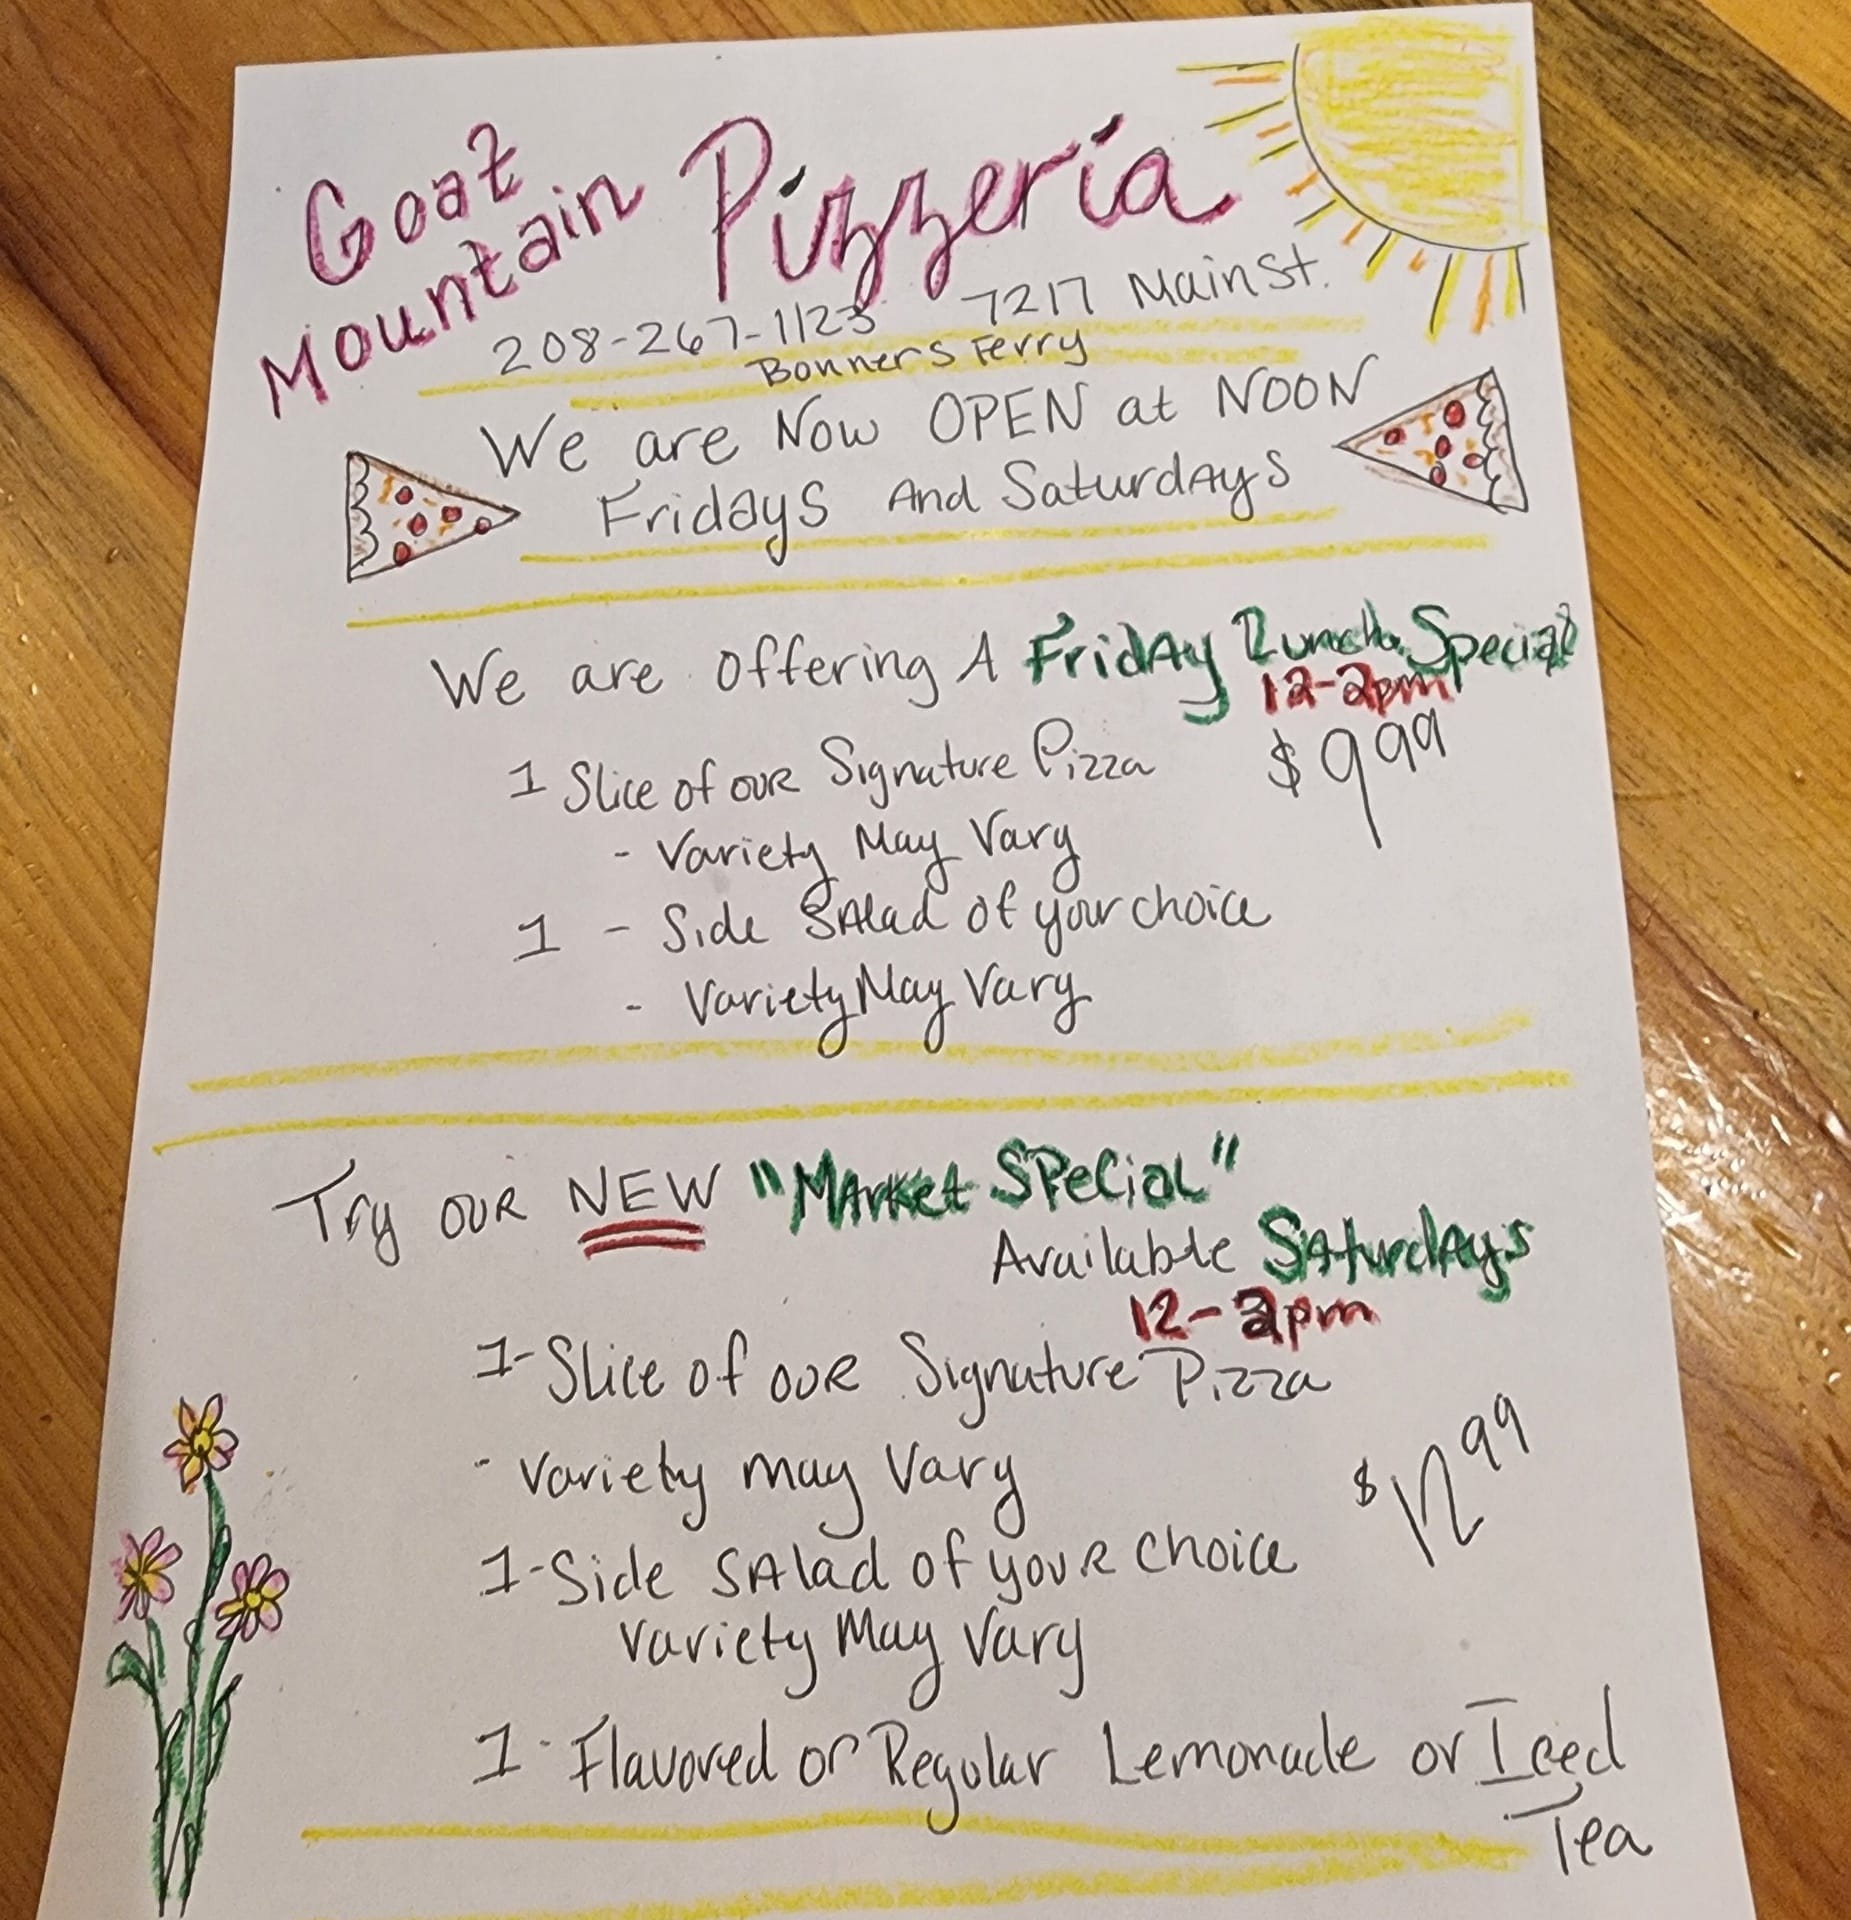 Goat
Mountain Pizzeria
208-267-1123 7217 Main St.
Bonners Ferry
We are Now OPEN at NOON
Fridays And Saturdays
We are offering A Friday Lunch Special
12-2pm
1 Slice of our Signature Pizza $9.99
- Variety May Vary
1 - Side Salad of your choice
- Variety May Vary
Try our NEW "Market Special"
Available Saturdays
12-2pm
1- Slice of our Signature Pizza
- Variety may Vary
$12.99
1- Side Salad of your choice
Variety May Vary
1- Flavored or Regular Lemonade or Iced
Tea